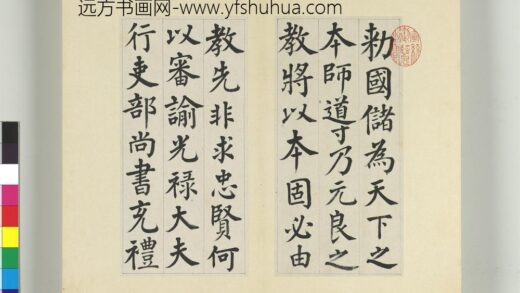 远方书画网-www.yfshuhua.com
勑國儲為天下之
本師導乃元良之
教將以本固必由
教先非求忠賢何
以審諭光祿大夫
行吏部尚書充禮